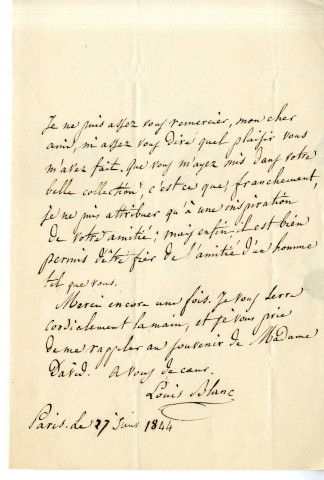 Je ne puis assez vous remercier, mon cher
ami, ni assez vous dire quel plaisir vous
m'avez fait. Que vous m'ayez mis dans votre
belle collection, c'est ce que, franchement,
je ne puis attribuer qu'à une inspiration
de votre amitié; mais enfin, il est bien
permis d'être fier de l'amitié d'un homme
tel que vous.
Merci encore une fois. Je vous serre
cordialement la main, et je vous prie
de me rappeler au souvenir de Madame
David. A vous de cœur.
Louis Blanc
Paris. Le 27 1844